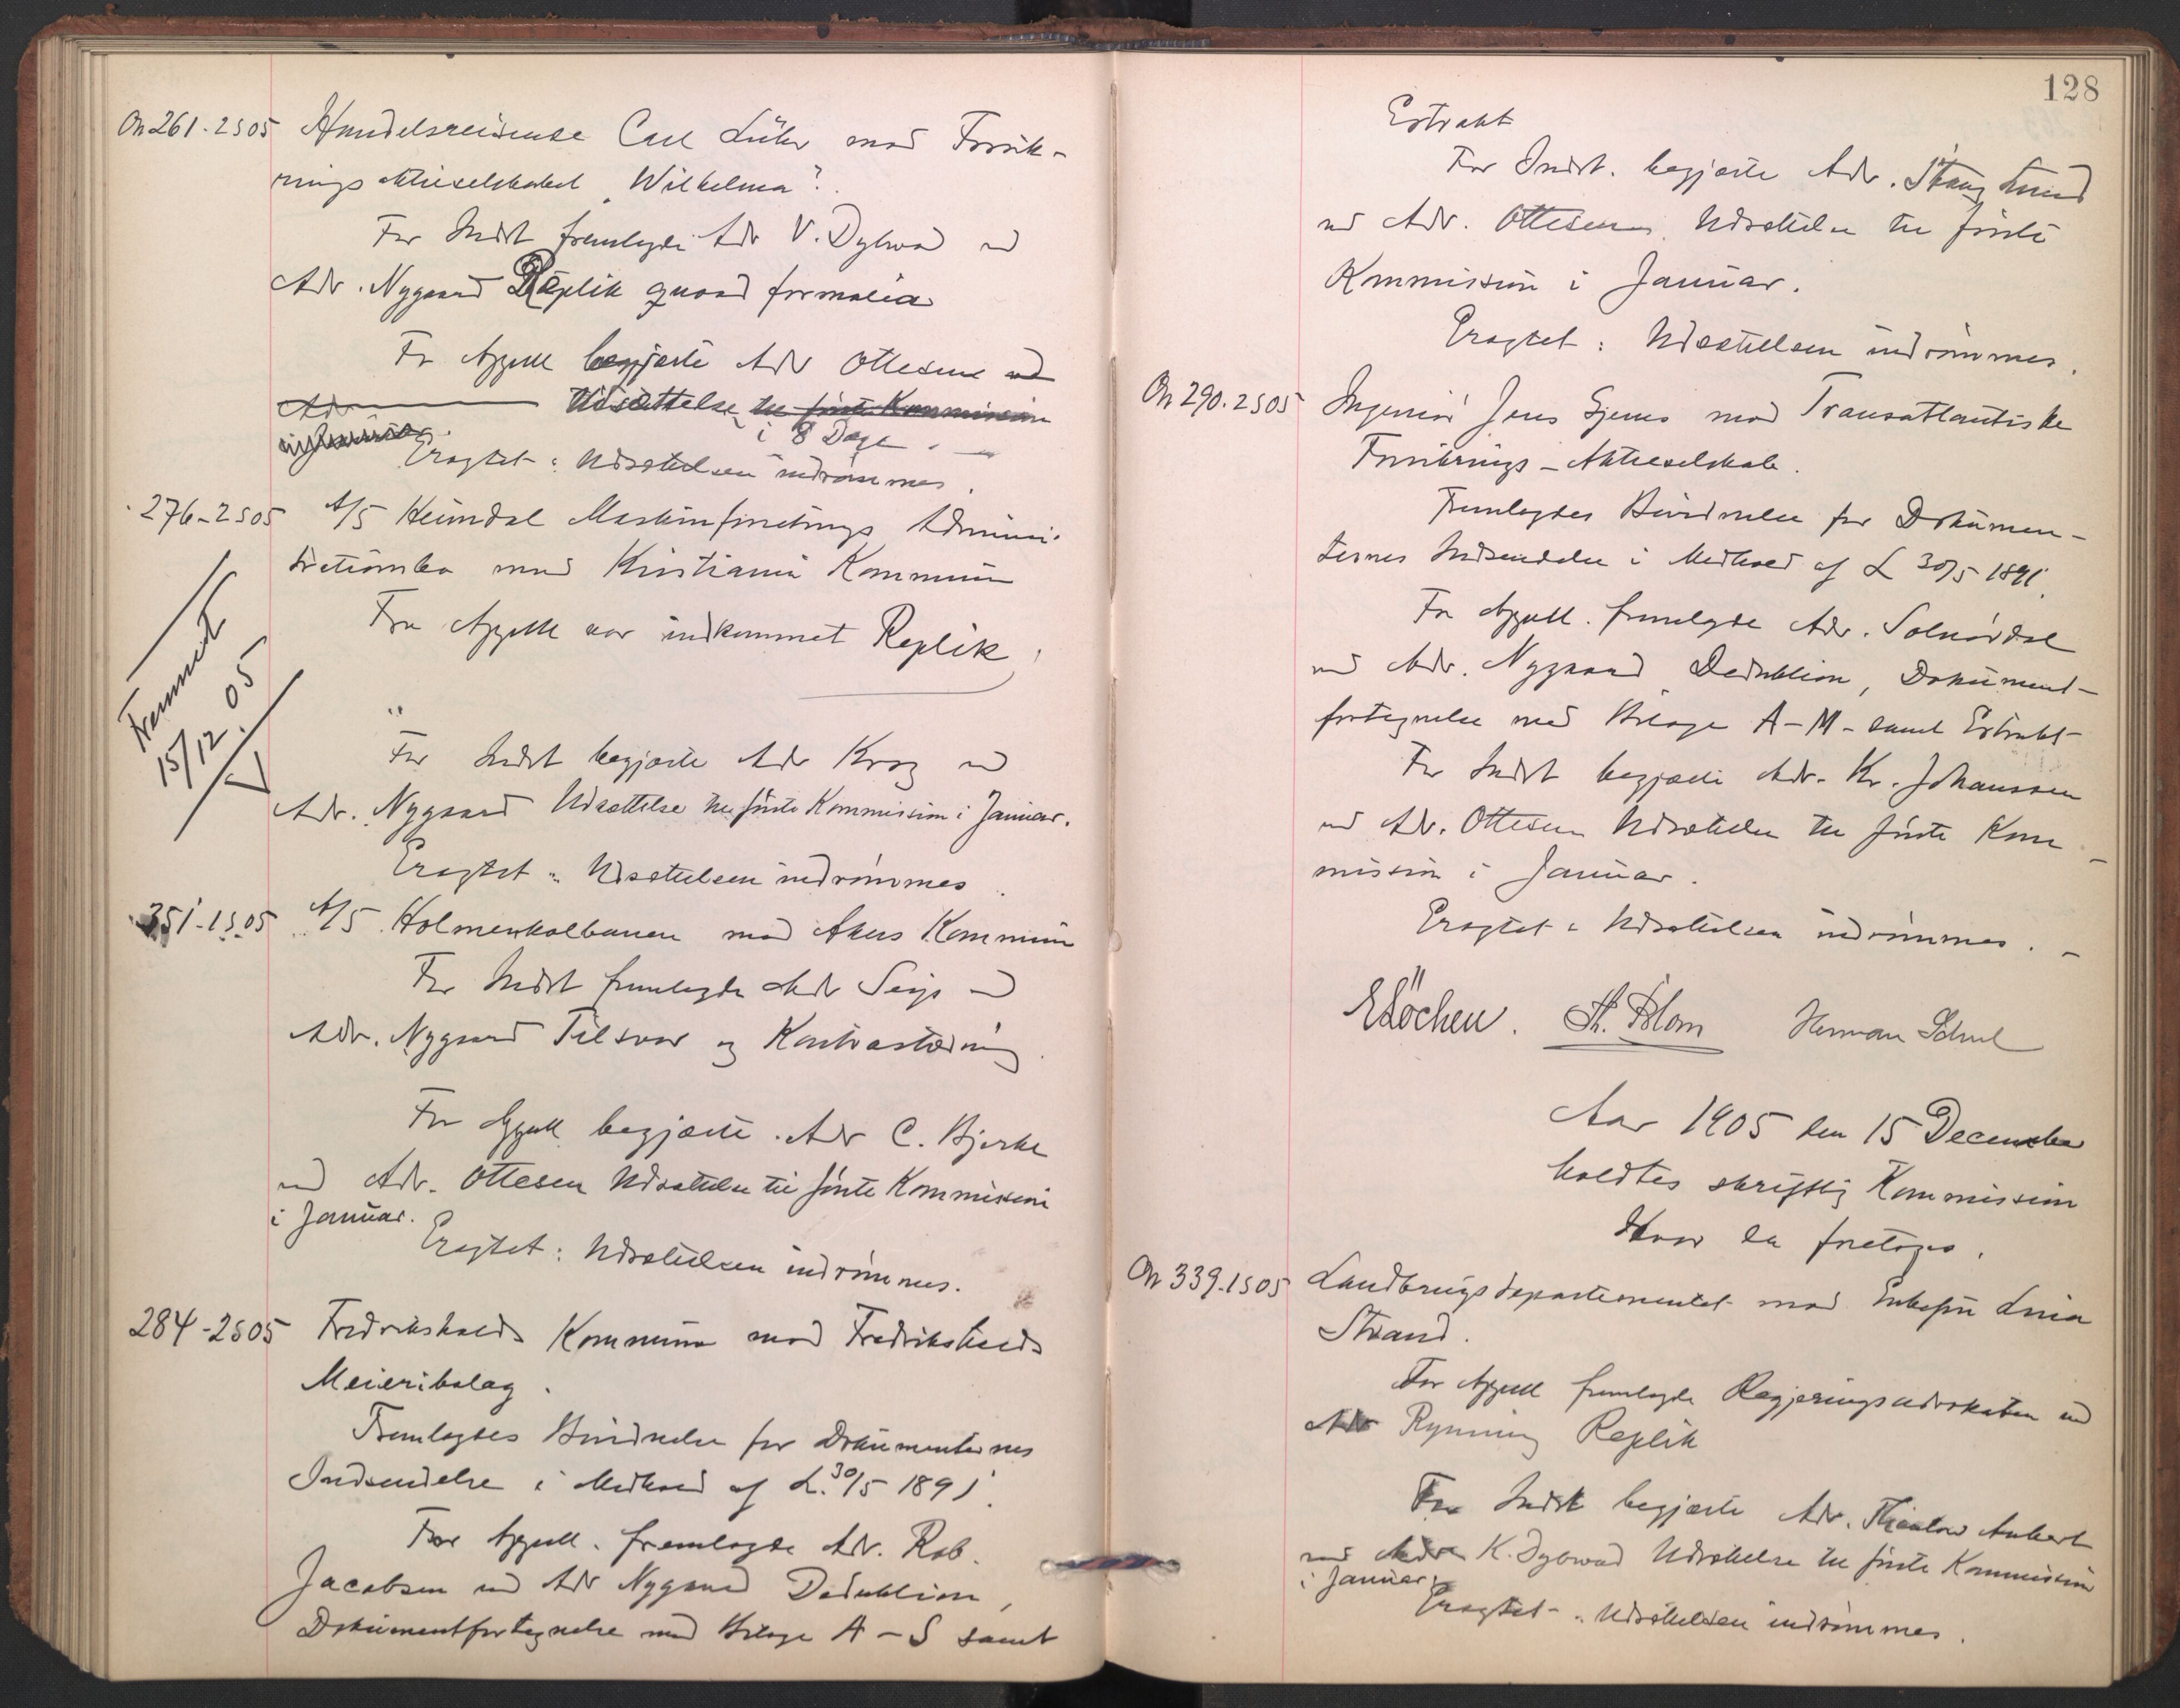 On 261-2 S 05 Handelsreisende Carl Lühr mod Forsik-
rings aktieselskabet "Wilhelma".
For Indst fremlagde Adv V. Dybwad ved
Adv. Nygaard Replik quoad formalia
For Appell begjærte Adv Ottesen ved
Adv Udsættelse til første Kommission
i 8 Dage.
Eragtet: Udsættelsen indrømmes.
276-2 S 05 A/S Heimdal Maskinforretnings Admini-
strationsbo mod Kristiania Kommune
Fra Appell var indkommet Replik
Fremmet
15/12.05
For Indst begjærte Adv Krog ved
Adv. Nygaard Udsættelse til første Kommission i Januar.
Eragtet: Udsættelsen indrømmes.
351-1 S 05 A/S Holmenkolbanen mod Akers Kommune
For Indst fremlagde Adv Seip ved
Adv. Nygaard Tilsvar og Kontrastævning
For Appell begjærte Adv C. Bjerke
ved Adv. Ottesen Udsættelse til første Kommission
i Januar.
Eragtet: Udsættelsen indrømmes.
284-2 S 05 Fredrikshalds Kommune mod Fredrikshalds
Meieribolag.
Fremlagdes Bevidnelse for Dokumenternes
Indsendelse i Medhold af L. 30/5 1891.
For Appell. fremlagde Adv. Rob.
Jacobsen ved Adv Nygaard Deduktion,
Dokumentfortegnelse med Bilage A-S samt
128
Extrakt
For Indst. begjærte Adv. Stang Lund
ved Adv. Ottesen Udsættelse til første
Kommission i Januar.
Eragtet: Udsættelsen indrømmes.
On 290.2 S 05 Ingeniør Jens Gjems mod Transatlantiske
Forsikrings-Aktieselskab.
Fremlagdes Bevidnelse for Dokumen-
ternes Indsendelse i Medhold af L 30/5 1891.
For Appell. fremlagde Adv. Solnørdal
ved Adv. Nygaard Deduktion, Dokument-
fortegnelse med Bilage A-M- samt Extrakt
For Indst begjærte Adv. Kr. Johanssen
ved Adv. Ottesen Udsættelse til første Kom-
mission i Januar.
Eragtet: Udsættelsen indrømmes.
E Løchen. Th. Blom Herman Scheel
Aar 1905 den 15 December
holdtes skriftlig Kommission
Hvor da foretoges.
On 339-1 S 05 Landbrugsdepartementet mod Enkefru Lina
Strand.
For Appell fremlagde Regjeringsadvokaten ved
Adv Rynning Replik
For Indst begjærte Adv. Thaulow Aubert
ved Adv K. Dybwad Udsættelse til første Kommission
i Januar.
Eragtet: Udsættelsen indrømmes.